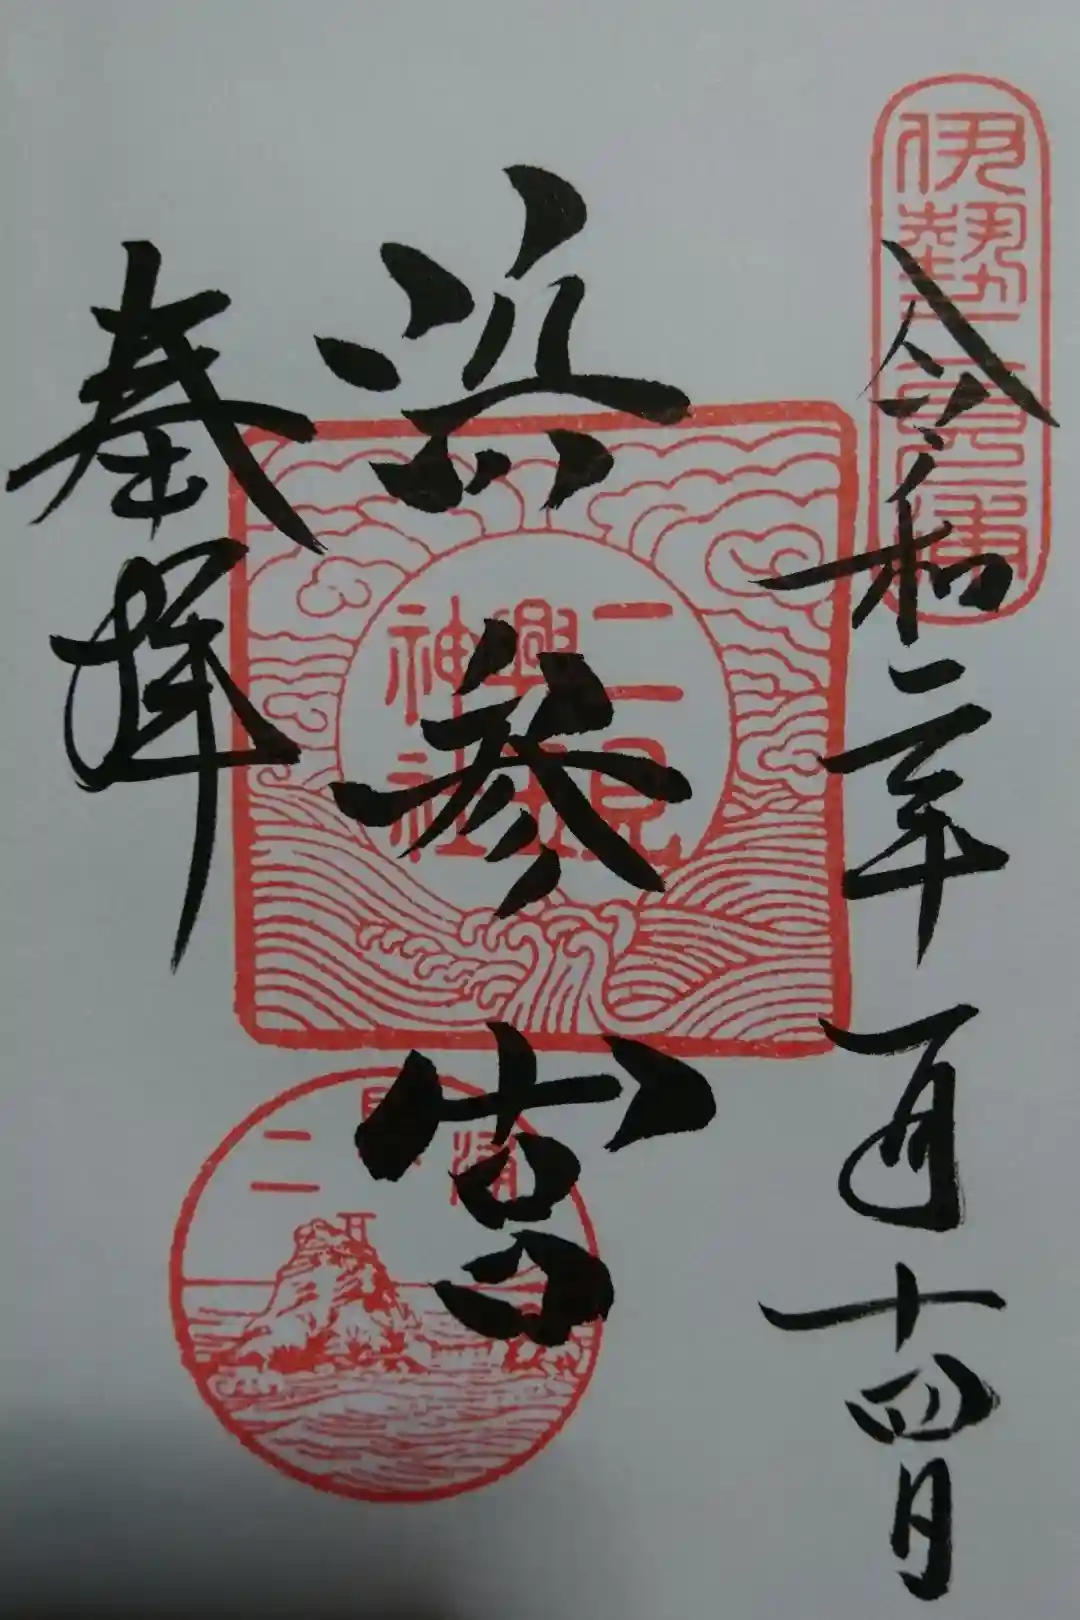 伊勢二見浦
令和二年一月十四日
浜参宮
二見
興玉
神社
二見浦
奉拝